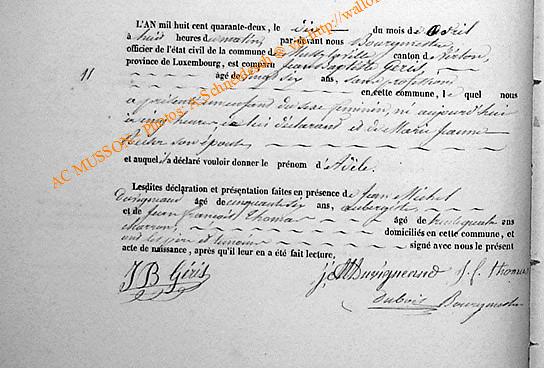 L'AN mil huit cent quarante-deux, le dix du mois d'Avril
à huit heures du matin, par-devant nous Bourgmestre
officier de l'état civil de la commune de Mussy-la-ville canton de Virton,
province de Luxembourg, est comparu Jean Baptiste Géris
11 âgé de vingt six ans, sans profession
en cette commune, le quel nous
a présenté un enfant du sexe féminin, né aujourd'hui
à cinq heures de lui déclarant et de Marie Jeanne
son épouse
et auquel il a déclaré vouloir donner le prénom d'Adèle.
Lesdites déclaration et présentation faites en présence de Jean Michel
Duvigneaud âgé de cinquante six ans, aubergiste
et de Jean françois Thomas âgé de ans
charron, domiciliés en cette commune, et
ont les père et témoins signé avec nous le présent
acte de naissance, après qu'il leur en a été fait lecture,
JB Géris J. M Duvigneaud J. f. thomas
Dubois Bourgmestre
AC MUSSON - Photos: A.Schneidesch @ via http://wallo